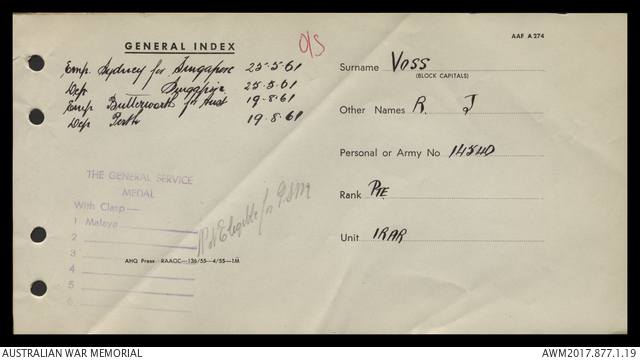 AAF A274
GENERAL INDEX
O/S
Emp. Sydney for Singapore 25-5-61
Dep Singapore 25-5-61
Emp Butterworth for Aust 19-8-61
Dep Perth 19-8-61
Surname VOSS
(BLOCK CAPITALS)
Other Names R. J
Personal or Army No 14540
Rank PTE.
Unit 1RAR
THE GENERAL SERVICE
MEDAL
With Clasp—
1 Malaya
2
3
4
5
6
Not Eligible for GSM
AHQ Press RAAOC—136/55—4/55—1M
AUSTRALIAN WAR MEMORIAL
AWM2017.877.1.19